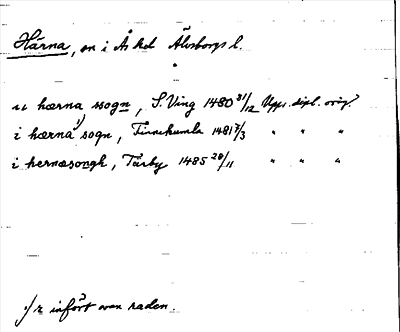 Härna, sn i Ås hd Älvsborgs l.
u hærna ssogn, S. Ving 1480 31/12 Upps. dipl. orig.
i hærna 1) sogn, Finnekumla 1481 7/3 " " "
i hernæsongh, Tärby 1485 20/11 " " "
1) r infört ovan raden.